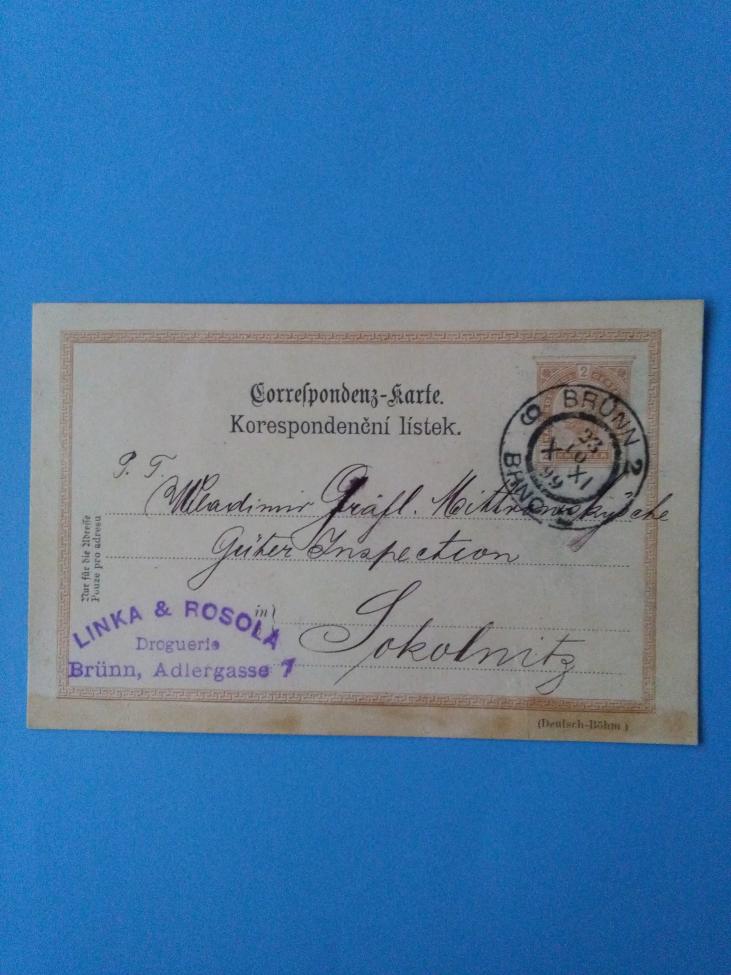 Correspondenz-Karte.
Korespondenční lístek.
2
BRÜNN 2
BRNO
P. T.
Wladimir Gräfl. Mittrowsky'sche
Güter Inspection
in
Sokolnitz
Nur für die Adresse
Pouze pro adresu
LINKA & ROSOLA
Droguerie
Brünn, Adlergasse 7
(Deutsch-Böhm.)